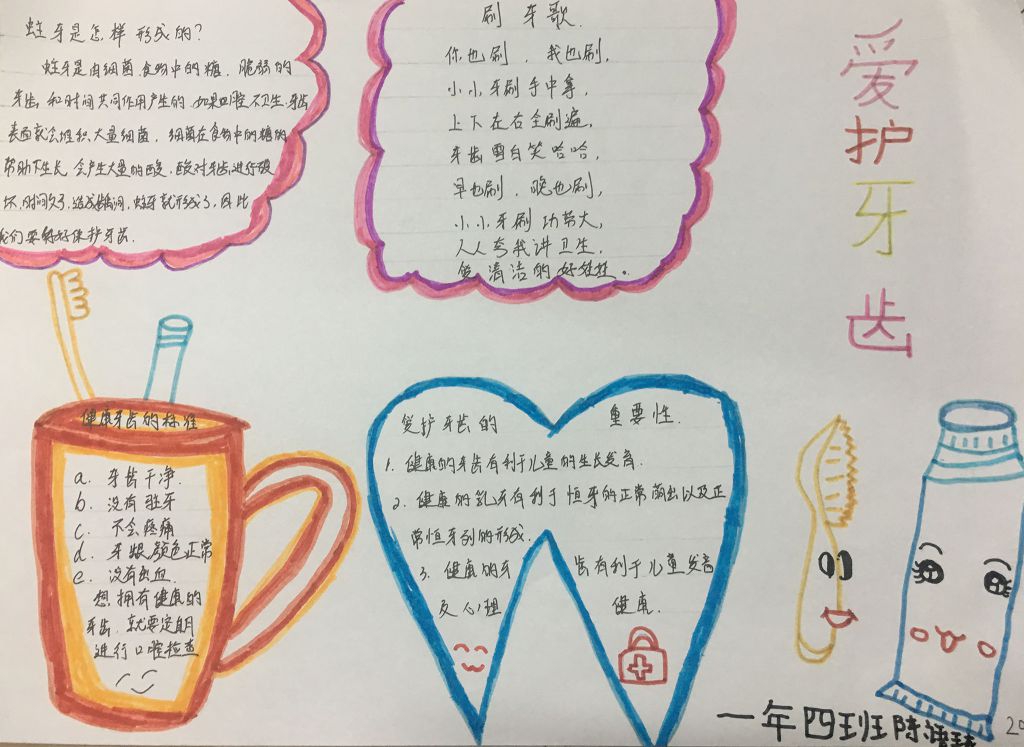 蛀牙是怎样形成的?
蛀牙是由细菌.食物中的糖、脆弱的
牙齿和时间共同作用产生的.如果口腔不卫生,牙齿
表面就会堆积大量细菌,细菌在食物中的糖的
帮助下生长,会产生大量的酸,酸对牙齿进行破
坏,时间久了,造成龋洞,蛀牙就形成了,因此
我们要好好保护牙齿.
刷牙歌.
你也刷,我也刷,
小小牙刷手中拿,
上下左右全刷遍,
牙齿雪白笑哈哈,
早也刷,晚也刷,
小小牙刷功劳大,
人人夸我讲卫生,
爱清洁的好娃娃。
爱护牙齿
健康牙齿的标准
a. 牙齿干净.
b. 没有蛀牙
c. 不会疼痛
d. 牙龈颜色正常
e. 没有出血.
想拥有健康的
牙齿,就要定期
进行口腔检查
爱护牙齿的 重要性.
1.健康的牙齿有利于儿童的生长发育.
2.健康的乳牙有利于恒牙的正常萌出以及正
常恒牙列的形成.
3. 健康的牙 齿有利于儿童发音
及心理 健康.
一年四班陈
20